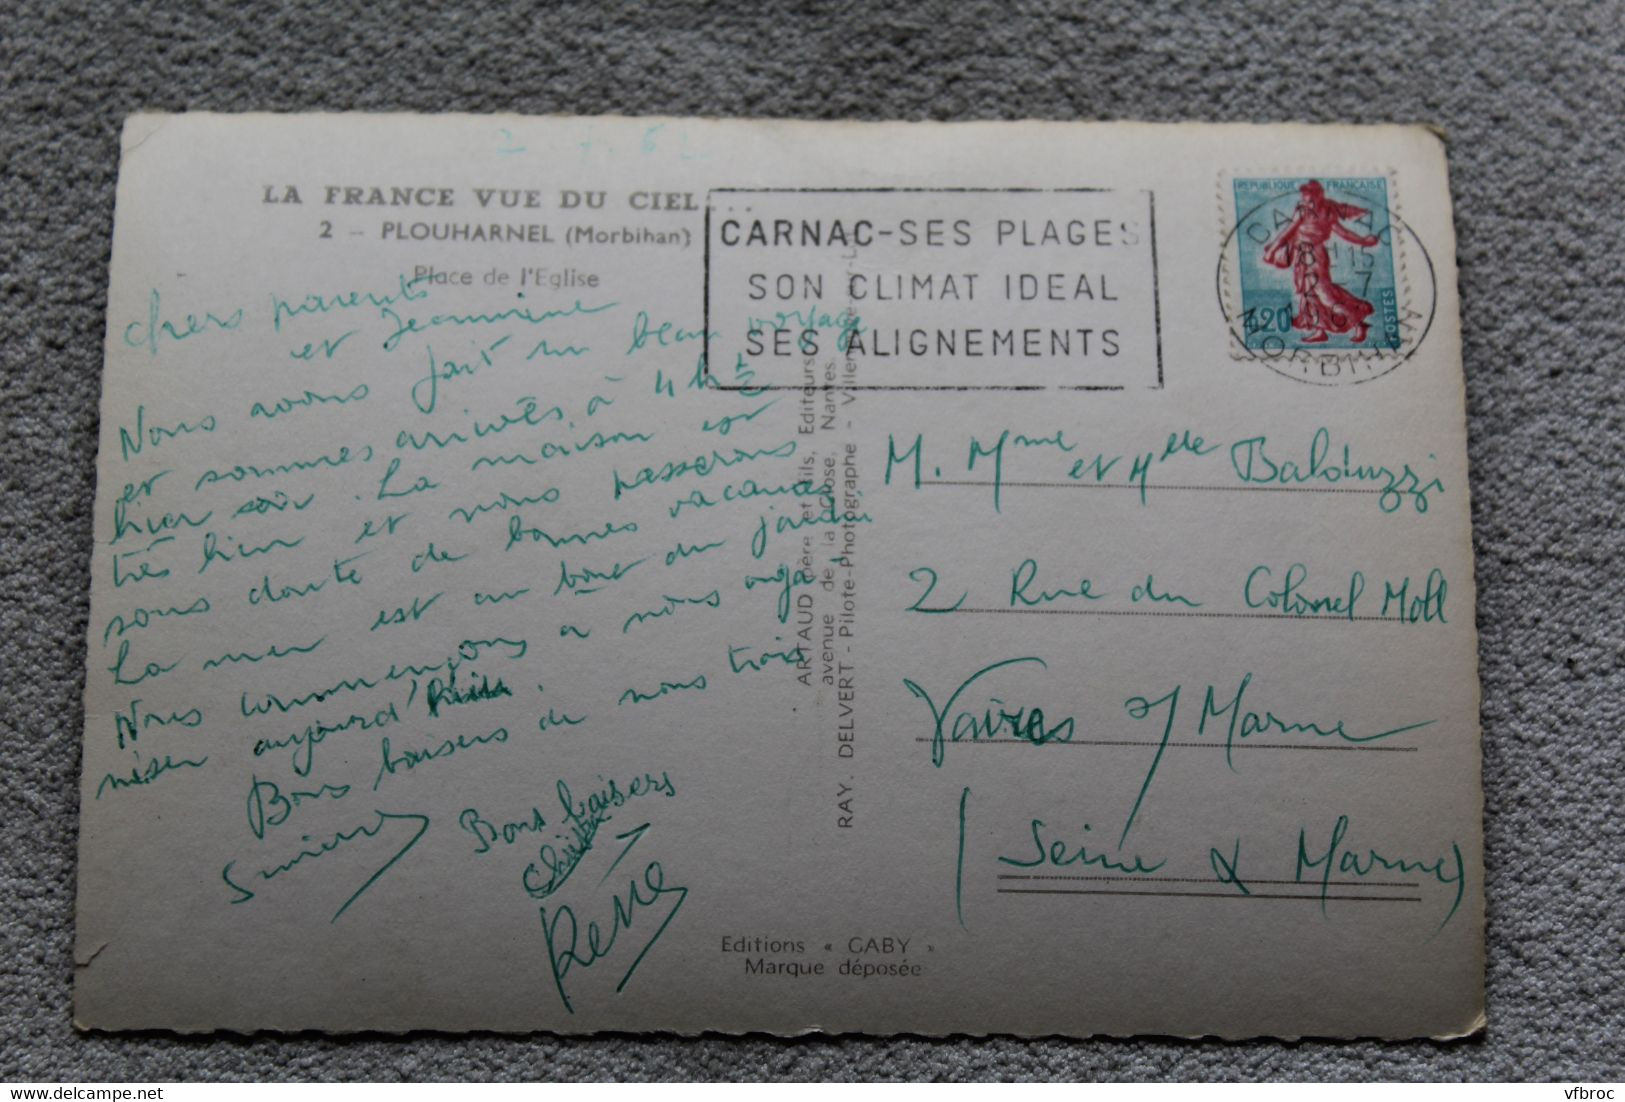 2 7.62
LA FRANCE VUE DU CIEL...
2 -- PLOUHARNEL (Morbihan)
Place de l'Eglise
CARNAC-SES PLAGES
SON CLIMAT IDEAL
SES ALIGNEMENTS
REPUBLIQUE FRANÇAISE
0,20
POSTES
CARNAC
18H15
2-7
MORBIHAN
chers parents
et Jeannine
Nous avons fait un beau voyage
et sommes arrivés à 4h ½
hier soir. La maison est
très bien et nous passerons
sans doute de bonnes vacances
La mer est au bout du jardin
Nous commençons à nous orga-
niser aujourd'hui.
Bons baisers de nous trois
Bons baisers
René
ARTAUD Père et Fils, Editeurs
avenue de la Close, Nantes.
RAY. DELVERT - Pilote-Photographe - Villeneuve-s/-Lot
M. Mme et Mlle
2 Rue du Colonel Moll
Vaires s/ Marne
(Seine & Marne)
Editions « GABY »
Marque déposée
vfbroc
delcampe.net